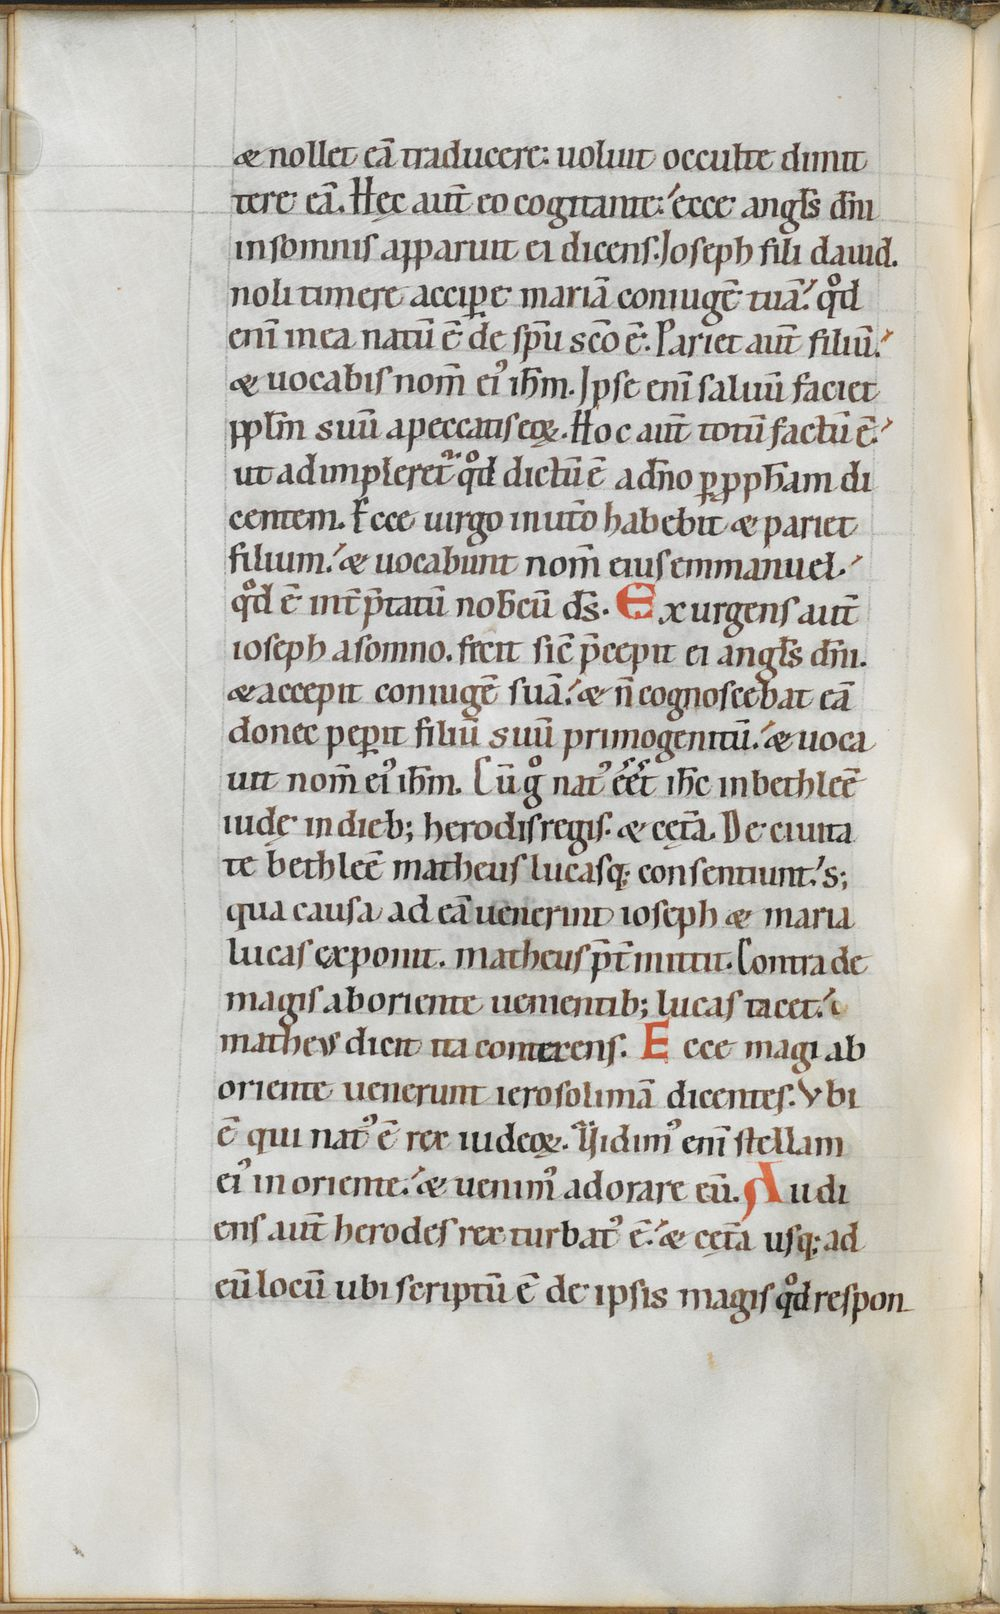 & nollet eā traducere: uoluit occulte dimit
tere eā. Hec aut̄ eo cogitante: ecce angl̄s dn̄i
in somnis apparuit ei dicens. Joseph fili dauid.
noli timere accip̱e mariā coniugē tuā: qͦd
eni̅ in ea natū ē de sp̅u sc̅o ē. Pariet aut̄ filiū:
& uocabis nom̅ ei᾽ ih̅m. Jpse eni̅ saluū faciet
ppl̅m suū a peccatis eoꝝ. Hoc aut̄ totū factū ē:
ut adimpleret᷑ qͦd dictū ē a dn̅o ꝑ ꝓph̅am di
centem. Ecce uirgo in ut̅o habebit & pariet
filium: & uocabunt nom̅ eius emmanuel.
qͦd ē int̅p̅tatū nob̅cū ds̅. Exurgens aut̄
ioseph a somno. fecit sic̅ p̅cepit ei angl̄s dn̅i.
& accepit coniugē suā: & n̅ cognoscebat eā
donec peꝑit filiū suū primogenitū: & uoca
uit nom̅ ei᾽ ih̅m. Cū gͦ nat᾽ eēt ih̅c in bethleē
iudę in dieb; herodis regis. & cęt̅a. De ciuita
te bethleē matheus lucasq; consentiunt: s;
qua causa ad eā uenerint ioseph & maria
lucas exponit. matheus p̅t̅mittit. Contra de
magis ab oriente uenientib; lucas tacet:
matheus dicit ita contexens. Ecce magi ab
oriente uenerunt ierosolimā dicentes. Vbi
ē qui nat᾽ ē rex iudeoꝝ. Vidim᾽ eni̅ stellam
ei᾽ in oriente: & uenim᾽ adorare eū. Audi
ens aut̄ herodes rex turbat᾽ ē: & cęt̅a usq; ad
eū locū ubi scriptū ē de ipsis magis qͦd respon